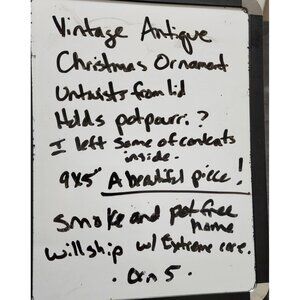 Vintage Antique
Christmas Ornament
Untwists from lid
Holds potpourri?
I left some of contents
inside.
9x5" A beautiful piece!
smoke and pet free
home
will ship w/ Extreme care.
5.